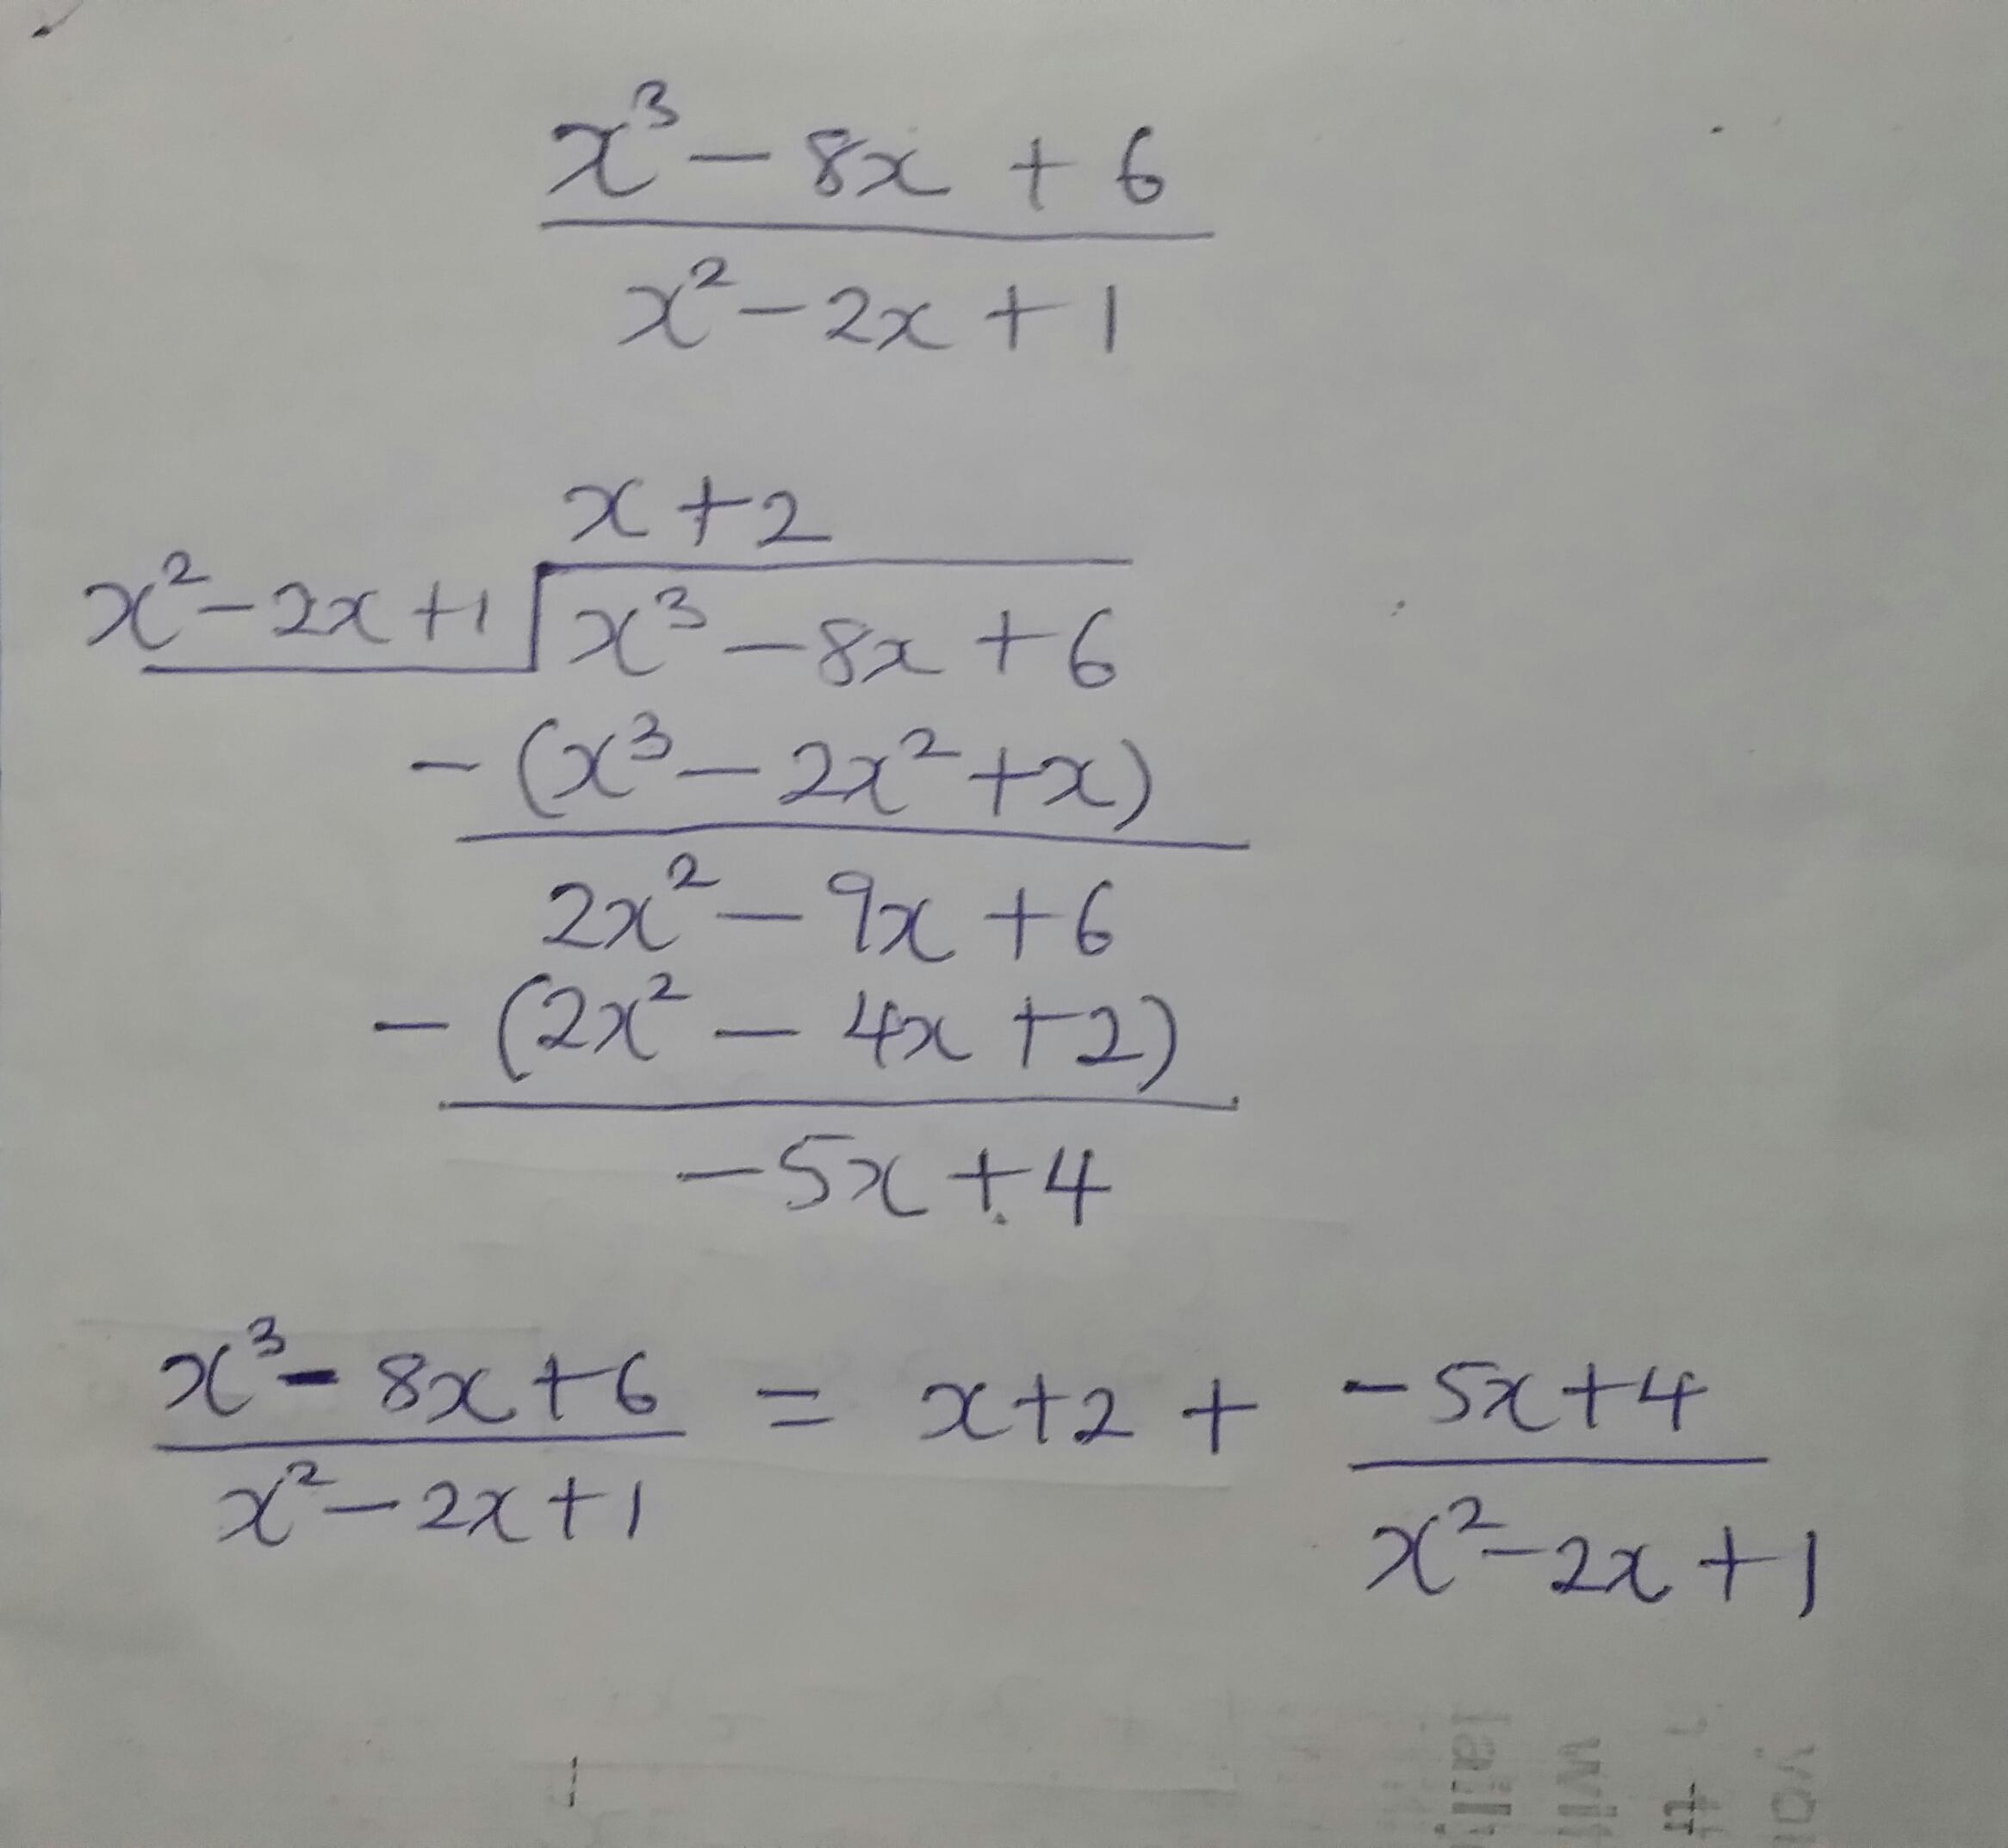 x³ - 8x + 6
x² - 2x + 1
x + 2
x² - 2x + 1 x³ - 8x + 6
- (x³ - 2x² + x)
2x² - 9x + 6
- (2x² - 4x + 2)
- 5x + 4
x³ - 8x + 6 = x + 2 + - 5x + 4
x² - 2x + 1 x² - 2x + 1